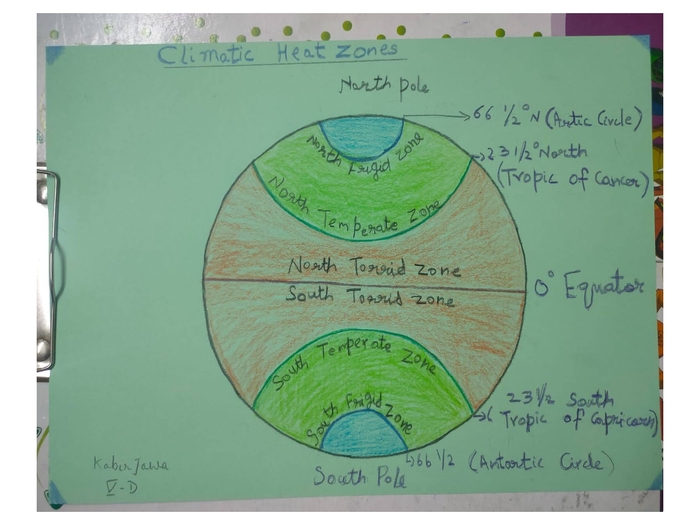 Climatic Heat Zones
North pole
66 1/2° N (Artic Circle)
North Frigid Zone
23 1/2° North
(Tropic of Cancer)
North Temperate Zone
North Torrid Zone
0° Equator
South Torrid Zone
South Temperate Zone
23 1/2 South
Tropic of Capricorn)
South Frigid Zone
66 1/2 (Antartic Circle)
South Pole
Kabir Jawa
V-D